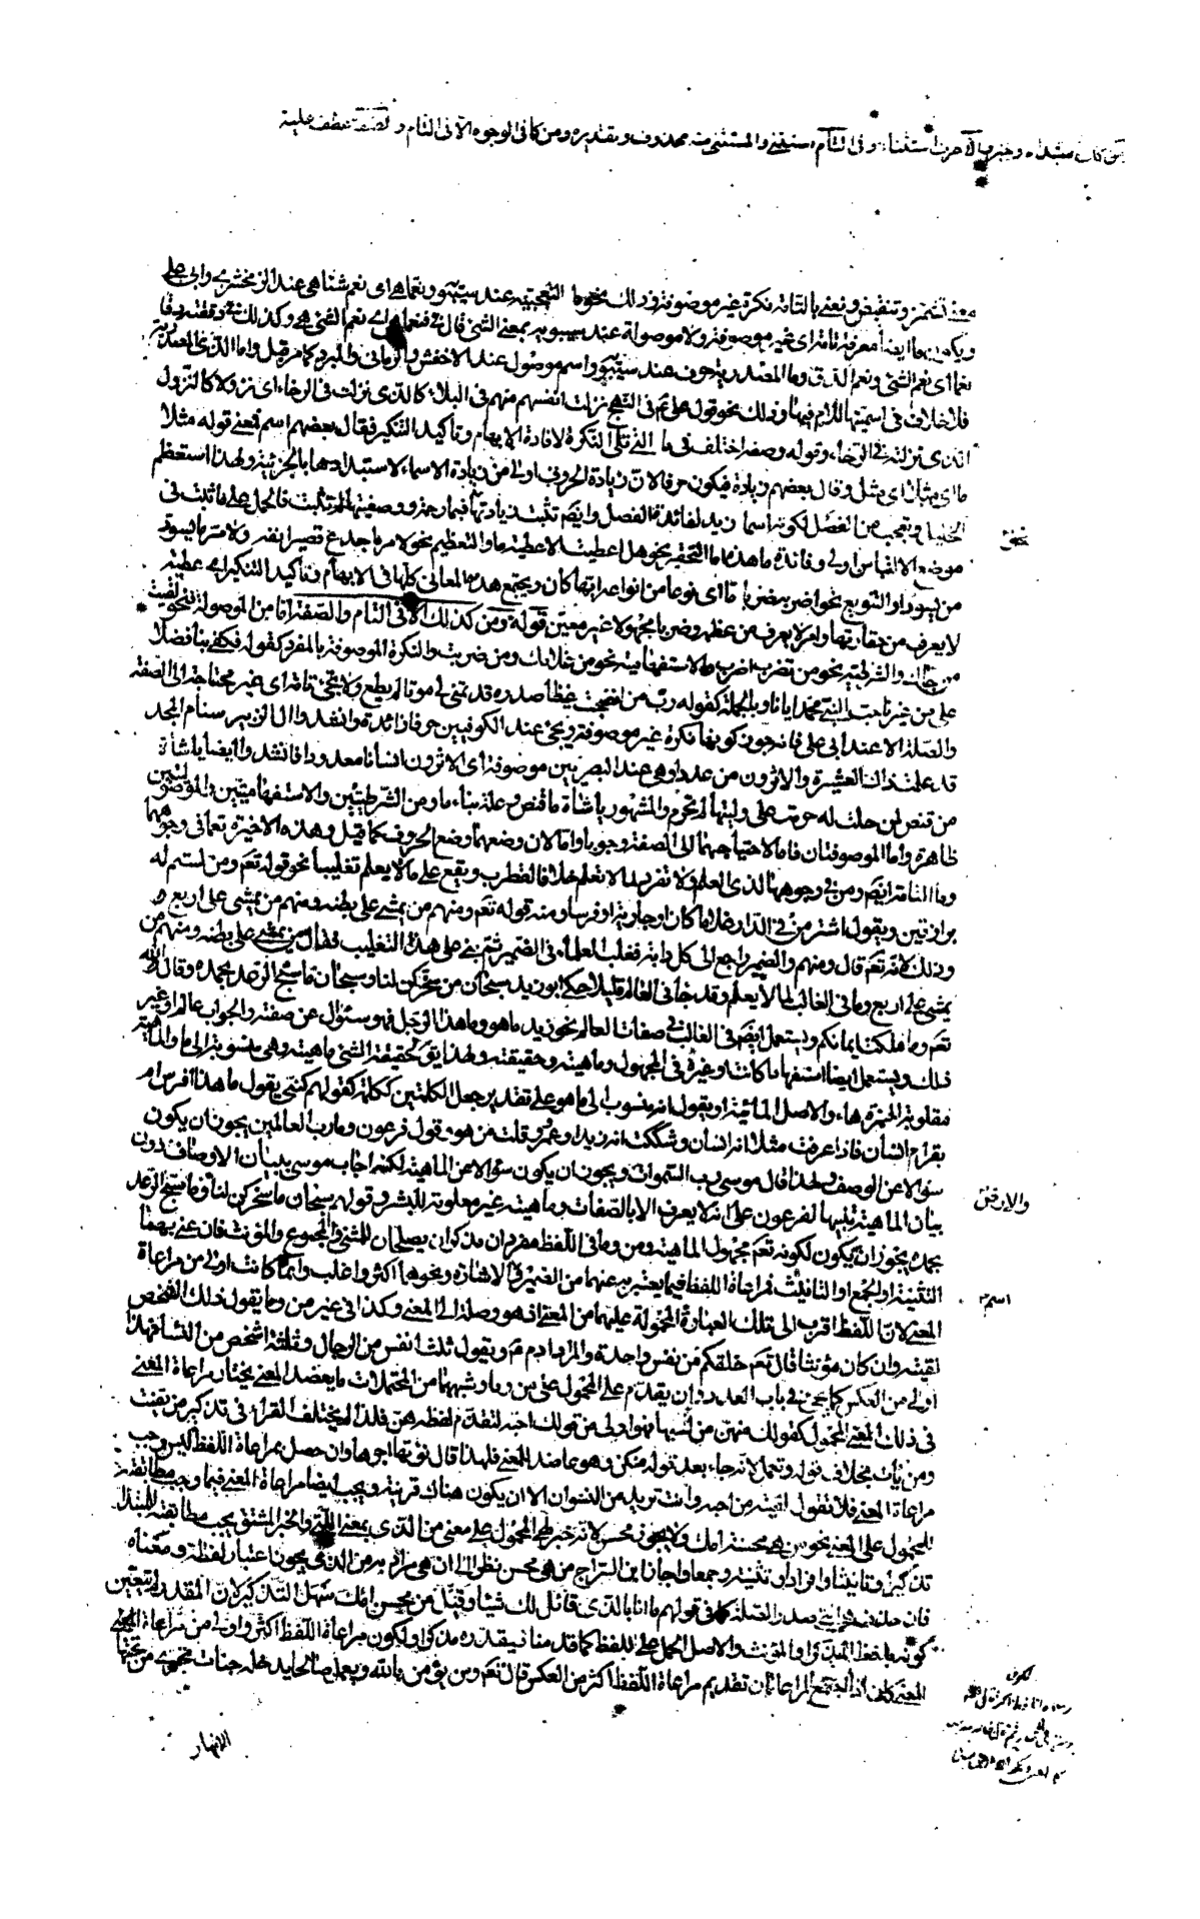 مبتداء وخبره الا حرف استثناء وفى التام مستثنى والمستثنى منه محذوف وتقديره ومن كما فى الوجوه الا فى التام والصفة عطف عليه
معنى تشمئز وتنقبض ونعنى بالتامة نكرة غير موصوفة وذلك نحو ما التعجبية عند سيبويه ونعما هى اى نعم شيئا هى عند الزمخشرى وابى على
ويكون ما ايضا معرفة تامة اى غير موصوفة ولا موصولة عند سيبويه بمعنى الشئ قال فى فنعما هى اى نعم الشئ هى وكذلك فى دققته دقا
نعما اى نعم الشئ ونعم الدق وما المصدرية حرف عند سيبويه واسم موصول عند الاخفش والرمانى والمبرد كما مر قبل واما الذى المصدرية
فلا خلاف فى اسميتها للام فيها وذلك نحو قول على فى النهج نزلت انفسهم منهم فى البلاء كالذى نزلت فى الرخاء اى نزولا كالنزول
الذى نزلته فى الرخاء وقوله وصفة اختلف فى ما التى تلى النكرة لافادة الابهام وتاكيد التنكير فقال بعضهم اسم فمعنى قوله مثلا
ما اى مثلا اى مثل وقال بعضهم زيادة فيكون حرفا لان زيادة الحروف اولى من زيادة الاسماء لاستبدادها بالجزئية ولهذا استعظم
الخليل وتعجب من الفصل لكونه اسما زيد لفائدة الفصل وايضا ثبتت زيادتها فيما رحمة ووصفيتها لم تثبت فالحمل على ما ثبت فى
موضع الالتباس اولى وفائدة ما هذه اما التحقير نحو هل اعطيت الا عطية ما والتعظيم نحو لامر ما جدع قصير انفه ولامر ما يسود
من يسود او التنويع نحو اضربه ضربا ما اى نوعا من انواعه ايها كان ويجتمع هذه المعانى كلها فى الابهام وتاكيد التنكير اى عطية
لا يعرف من حقارتها وامر لا يعرف من عظمه وضربا مجهولا غير معين قوله ومن كذلك الا فى التام والصفة اما من الموصولة فنحو لقيت
من جاءك والشرطية نحو من تضرب اضرب والاستفهامية نحو من غلامك ومن ضربت والنكرة الموصوفة بالمفرد كقوله فكفى بنا فضلا
على من غيرنا حب النبى محمد ايانا وبالجملة كقوله رب من انضجت غيظا صدره قد تمنى لى موتا لم يطع ولا تجئ تامة اى غير محتاجة الى الصفة
والصلة الا عند ابى على فانه جوز كونها نكرة غير موصوفة وتجئ عند الكوفيين حرفا زائدة وانشدوا ال الزبير سنام المجد
قد علمت ذاك العشيرة والاثرون من عددا وهى عند البصريين موصوفة اى الاثرون انسانا معدودا فانشدوا ايضا يا شاة
من قنص لمن حلت له حرمت على وليتها لم تحرم والمشهور يا شاة ما قنص وعلة بناء ما ومن الشرطيتين والاستفهاميتين والموصولتين
ظاهرة واما الموصوفتان فاما لاحتياجهما الى الصفة وجوبا واما لان وضعهما وضع الحروف كما قيل وهذه الاخيرة تعم فى وجوههما
وما التامة ايضا ومن فى وجوهها لذى العلم ولا تفرد لما لا يعلم خلافا لقطرب ويقع على ما لا يعلم تغليبا نحو قوله تعم ومن لستم له
برازقين ويقول اشتر من فى الدار غلاما كان او جارية او فرسا ومنه قوله تعم ومنهم من يمشى على بطنه ومنهم من يمشى على اربع
وذلك لانه تعم قال ومنهم والضمير راجع الى كل دابة فغلب العلماء فى الضمير ثم بنى على هذا التغليب فقال من يمشى على بطنه ومنهم من
يمشى على اربع وما فى الغالب لما لا يعلم وقد جاء فى العالم قليلا حكى ابو زيد سبحان من سخركن لنا وسبحان ما سبح الرعد بحمده وقال الله
تعم وما ملكت ايمانكم ويستعمل ايضا فى الغالب فى صفات العالم نحو زيد ما هو وما هذا الرجل فهو سئوال عن صفته والجواب عالم او غير
ذلك ويستعمل ايضا استفهاما كانت او غيره فى المجهول وماهيته وحقيقته ولهذا يق لحقيقة الشئ ماهيته وهى منسوبة الى ما والماهية
مقلوبة الهمزة هاء والاصل المائية او يقول انه منسوب الى ما هو على تقدير جعل الكلمتين ككلمة كقولهم كنتى يقول ما هذا افرس ام
بقر ام انسان فاذا عرفت مثلا انه انسان وشككت انه زيد او عمرو قلت من هو وقول فرعون وما رب العالمين يجوز ان يكون
سئوالا عن الوصف ولهذا قال موسى رب السموات ويجوز ان يكون سئوالا عن الماهية لكنه اجاب موسى ببيان الاوصاف دون
بيان الماهية تنبيها لفرعون على انه لا يعرف الا بالصفات وماهيته غير معلومة للبشر وقولهم سبحان ما سخركن لنا وما سبح الرعد
بحمده يجوز ان يكون لكونه تعم مجهول الماهية ومن وما فى اللفظ مفردان مذكران يصلحان للمثنى والمجموع والمؤنث فان عنى بهما
التثنية او الجمع او التانيث فمراعاة اللفظ فيما يعتبر به عنهما من الضمير والاشارة ونحوها اكثر واغلب وانما كانت اولى من مراعاة
المعنى لان اللفظ اقرب الى تلك العبارة المحمولة عليهما من المعنى اذ هو وصلة الى المعنى وكذا فى غير من وما يقول ذلك الشخص
لقيته وان كان مؤنثا قال تعم خلقكم من نفس واحدة والمراد ادم ويقول ثلث انفس من الرجال وثلثة اشخص من النساء فهذا
اولى من العكس كما يجئ فى باب العدد وان يقدم على المحمول على من وما وشبههما من المحتملات ما يعضد المعنى يختار مراعاة المعنى
فى ذلك المعنى المحمول كقولك منهن من احبها فهو اولى من قولك احبه لتقدم لفظة هن فلذا لم يختلف القراء فى تذكير من يقنت
ومن يات بخلاف قوله وتعمل لانه جاء بعد قوله منكن وهو عاضد المعنى فلهذا قال نؤتها اجرها وان حصل بمراعاة اللفظ لبس وجب
مراعاة المعنى فلا تقول لقيته من احبه وانت تريد من النسوان الا ان يكون هناك قرينة ويجب ايضا مراعاة المعنى فيما وجب مطابقته
للمحمول على المعنى نحو من هى محسنة امك ولا يجوز محسن لانه خبر هى المحمول على معنى من الذى بمعنى التى والخبر المشتق يجب مطابقته للمبتدا
تذكيرا وتانيثا وافرادا وتثنية وجمعا واجاز ابن السراج من هى محسن نظرا الى ان هى مراد به من الذى يجوز اعتبار لفظه ومعناه
فان حذف هى التى صدر الصلة كما فى قولهم ما انا بالذى قائل لك شيئا وقيل من محسن امك سهل التذكير لان المقدر لم يتعين
كونه بلفظ المذكر او المؤنث والاصل الحمل على اللفظ كما قدمنا فيقدره مذكرا ولكون مراعاة اللفظ اكثر واولى من مراعاة المعنى
المعنى كان اذا اجتمع المراعاتان تقديم مراعاة اللفظ اكثر من العكس قال تعم ومن يؤمن بالله ويعمل صالحا يدخله جنات تجرى من تحتها
والارض
اسم
الانهار